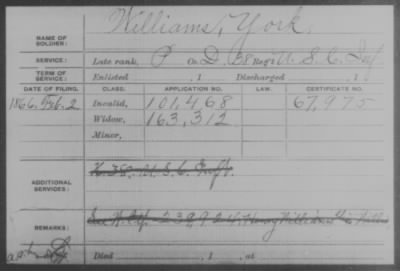 NAME OF SOLDIER: Williams, York.
SERVICE: Late rank, P Co. D, 38 Reg't U.S.C. Inf
TERM OF SERVICE: Enlisted , 1 Discharged , 1
DATE OF FILING. CLASS. APPLICATION NO. LAW. CERTIFICATE NO.
1866, Feb. 2 Invalid, 101,468 67,975
Widow, 163,312
Minor,
ADDITIONAL SERVICES: H. 38, U.S.C. Inf.
REMARKS: 239,924, Henry Williams
Died , 1 , at